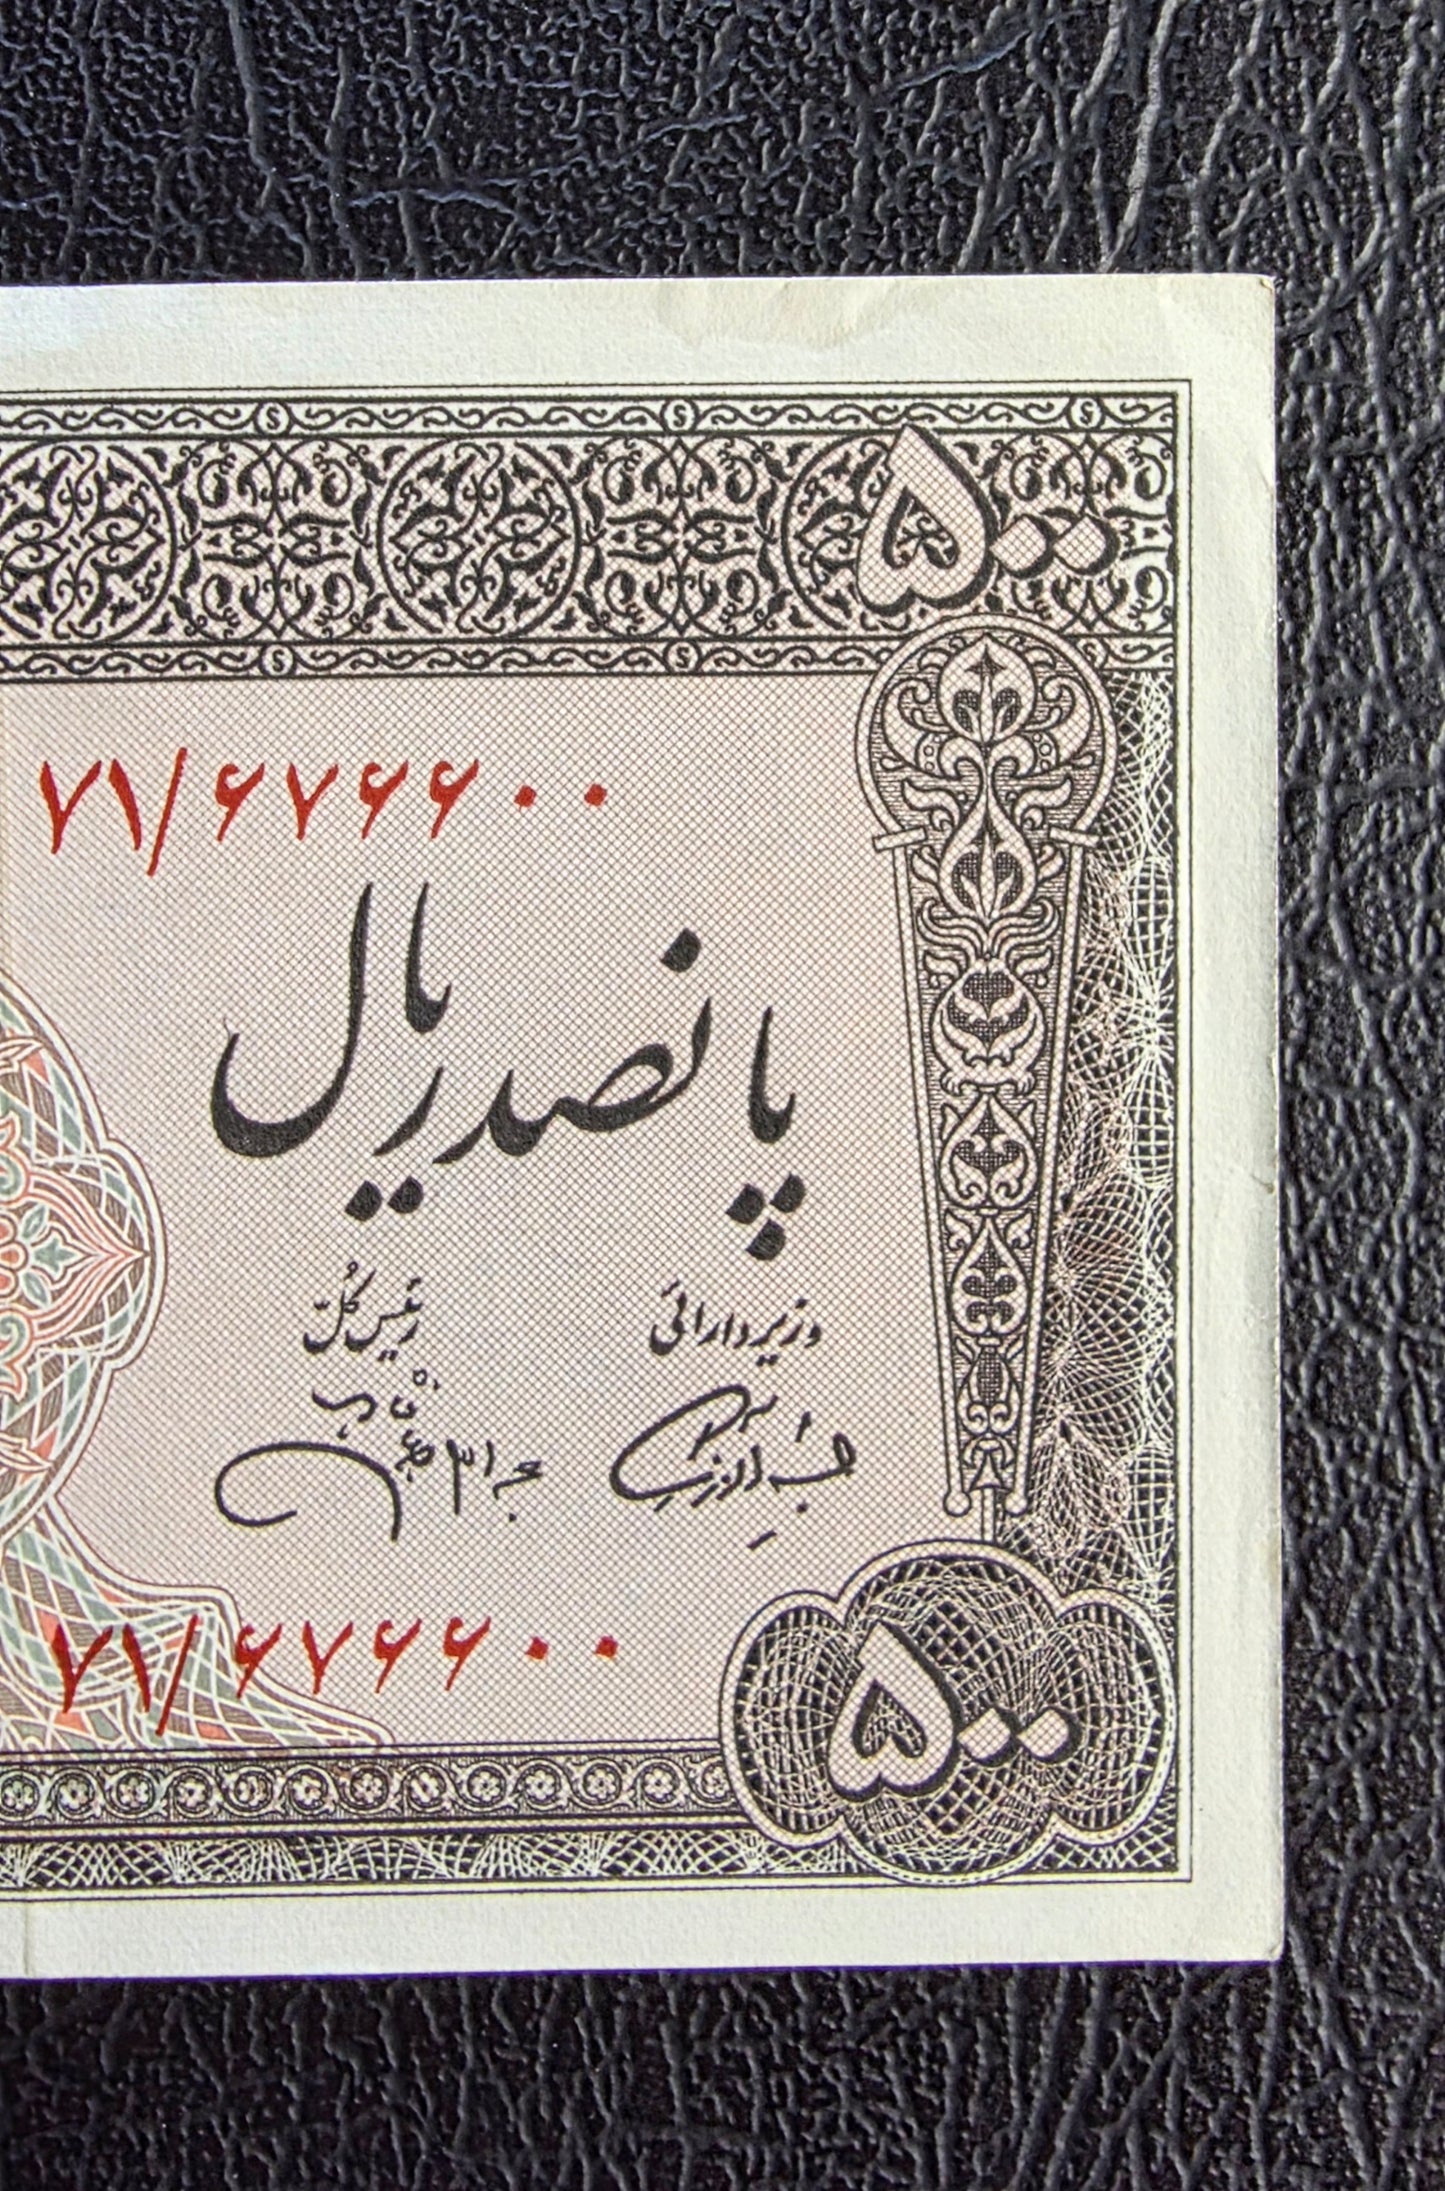 ۵۰۰
۷۱/۶۷۶۶۰۰
پانصد ریال
وزیر دارائی
رئیس کُلّ
۷۱/۶۷۶۶۰۰
۵۰۰